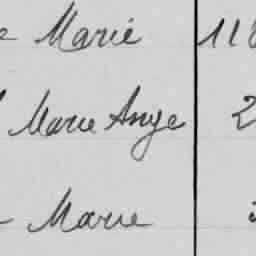 Marie 118
Marie Ange 2
Marie